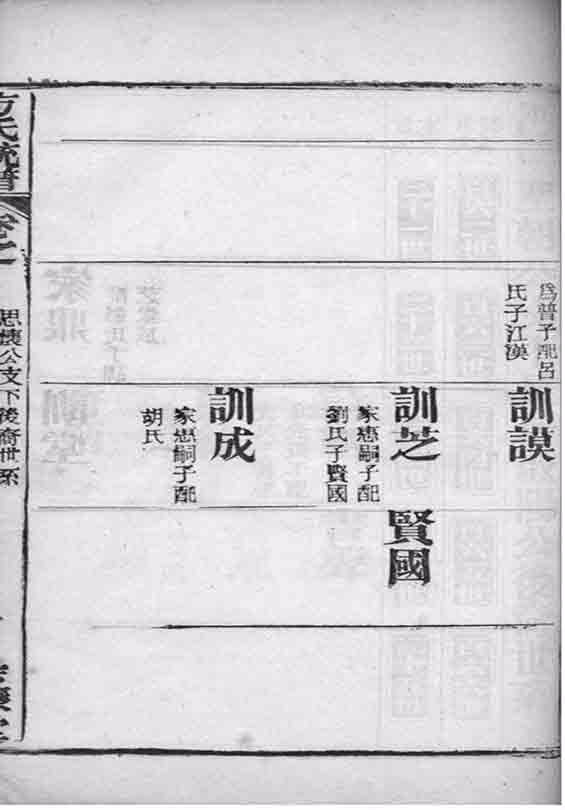 為普子配呂
氏子江漢
訓謨
訓芝
家惠嗣子配
劉氏子賢國
賢國
訓成
家惠嗣子配
胡氏
方氏統譜
卷之
思懷公支下後裔世系